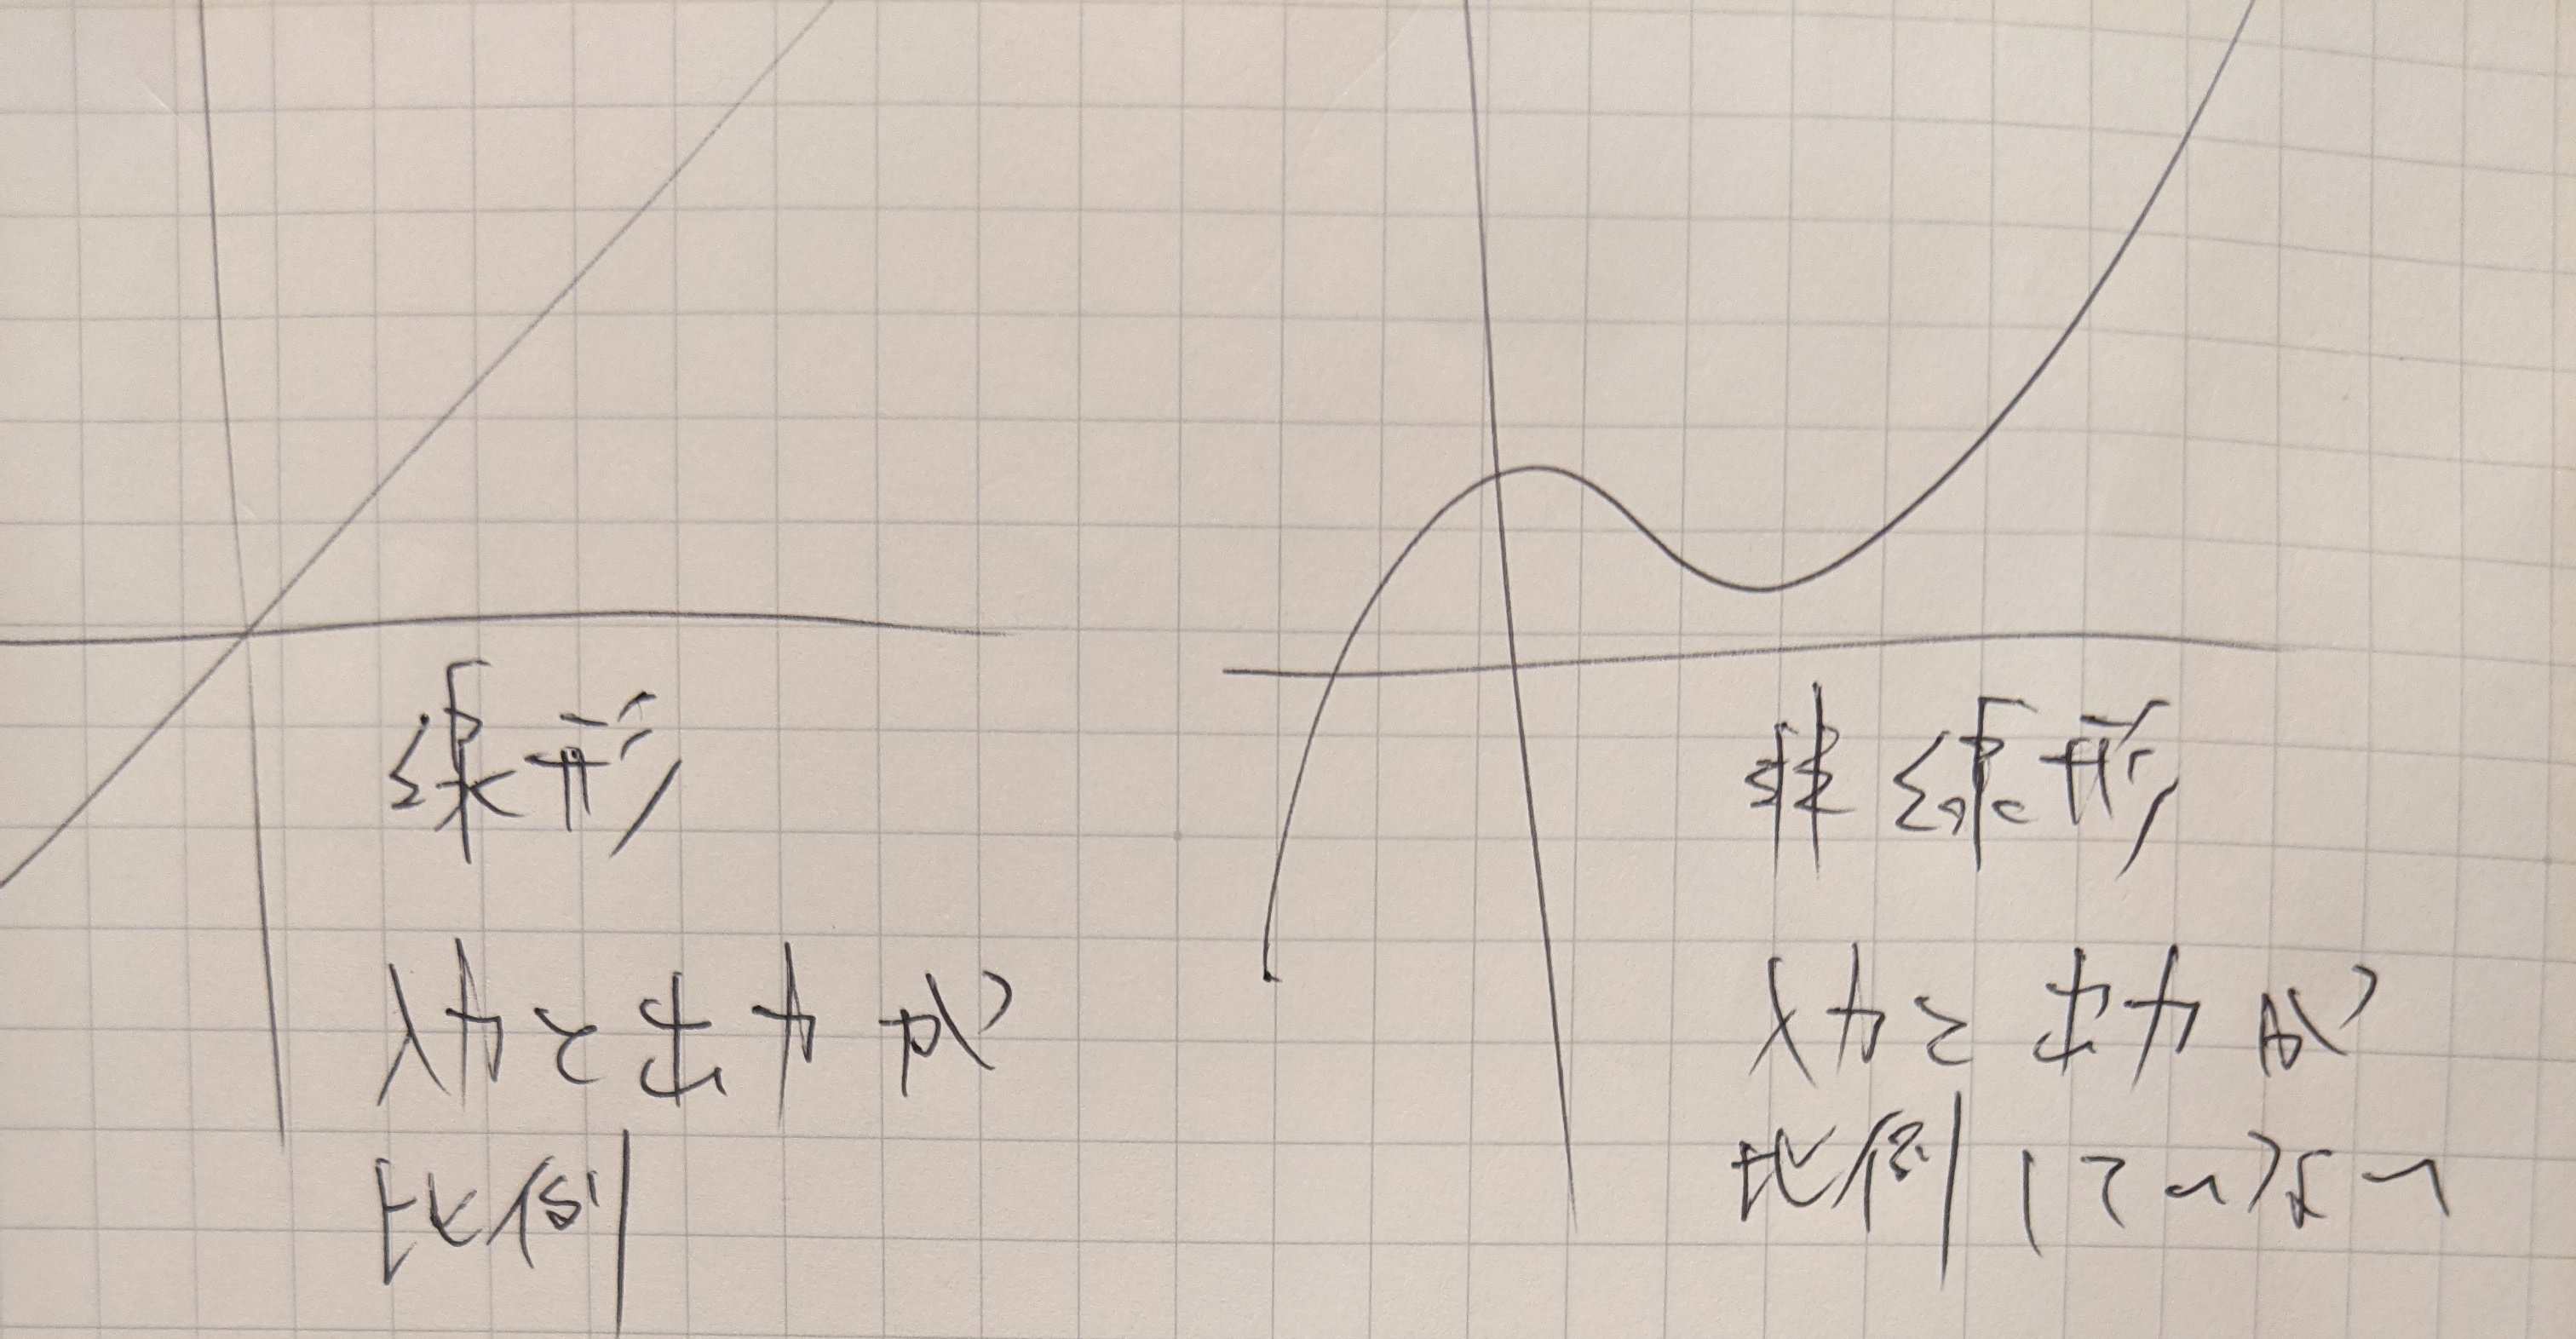 線形
入力と出力が
比例
非線形
入力と出力が
比例していない